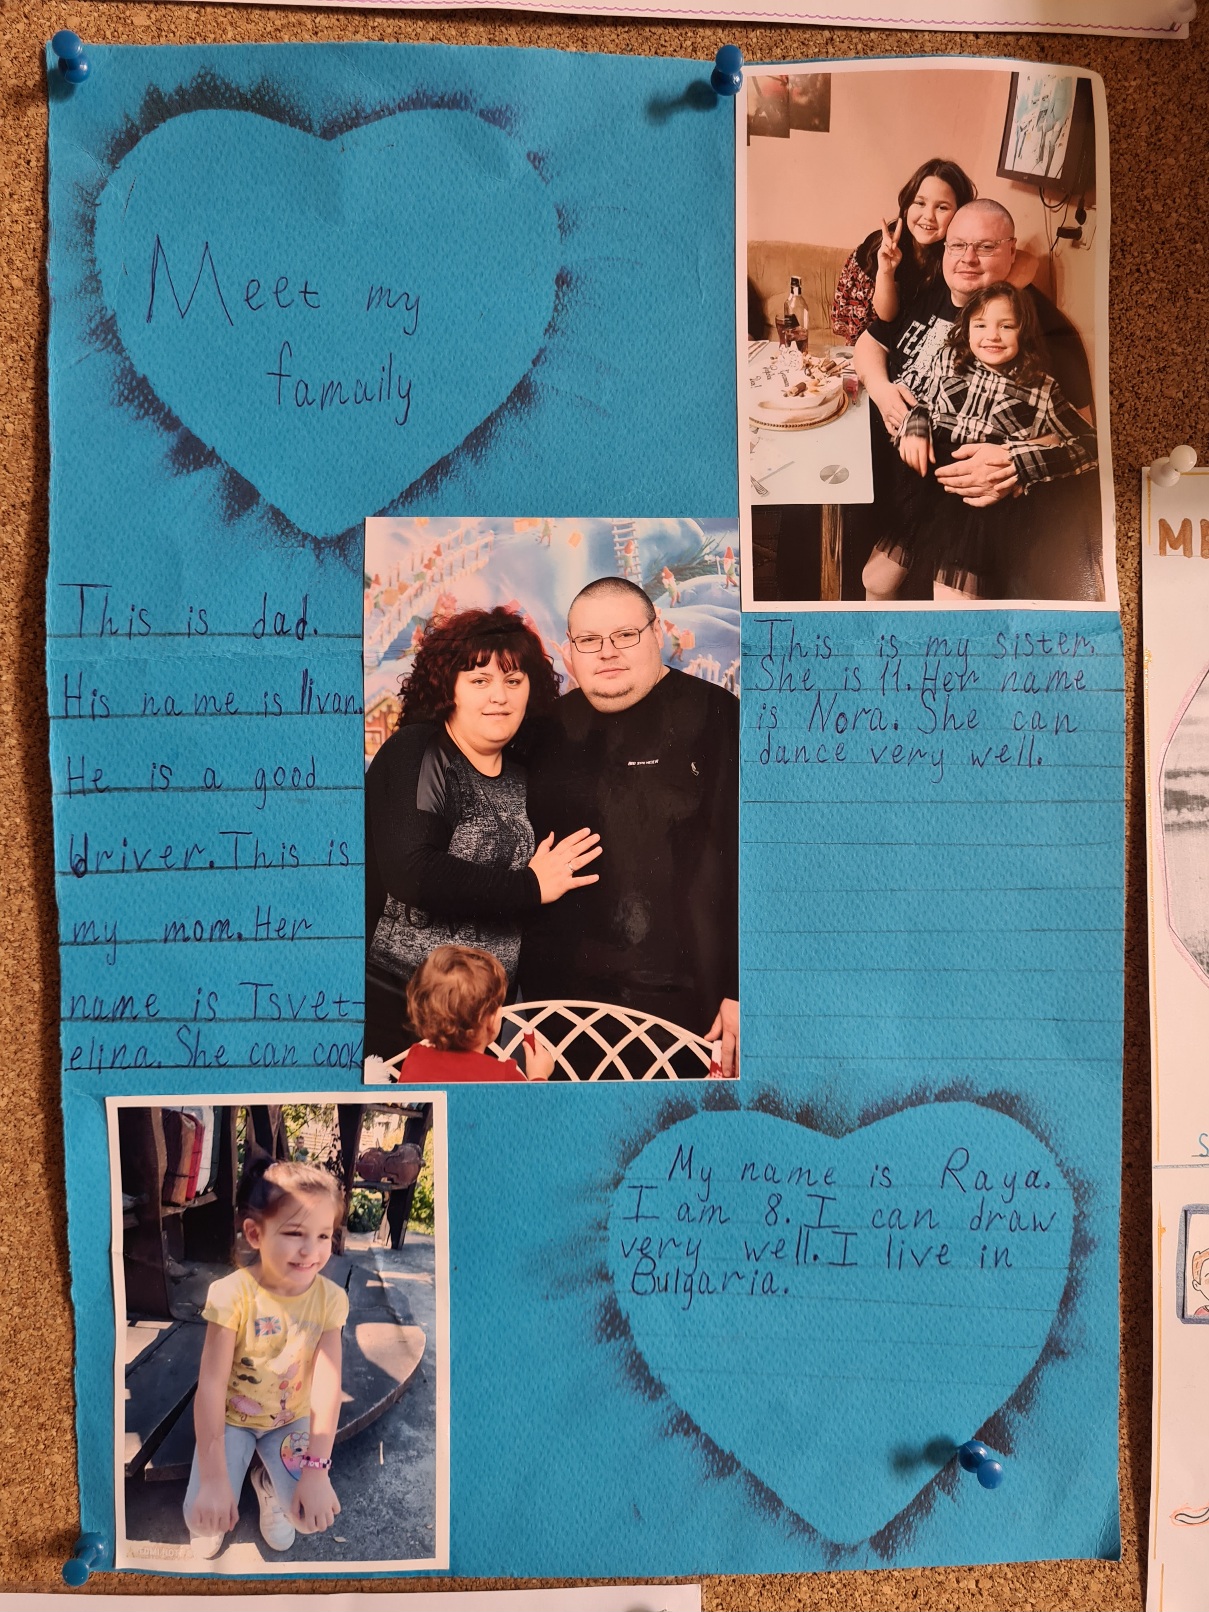 Meet my
famaily
This is dad.
His name is Ilivan.
He is a good
driver. This is
my mom. Her
name is Tsvet-
elina. She can cook
This is my sister.
She is 11. Her name
is Nora. She can
dance very well.
My name is Raya.
I am 8. I can draw
very well. I live in
Bulgaria.